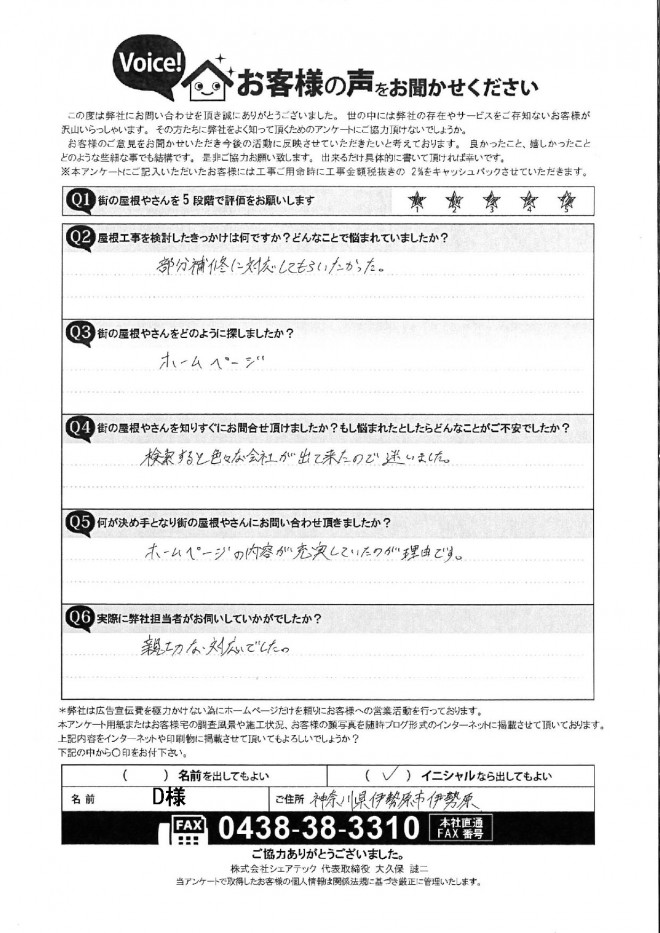 Voice!
お客様の声をお聞かせください
この度は弊社にお問い合わせを頂き誠にありがとうございました。世の中には弊社の存在やサービスをご存知ないお客様が
沢山いらっしゃいます。その方たちに弊社をよく知って頂くためのアンケートにご協力頂けないでしょうか。
お客様のご意見をお聞かせいただき今後の活動に反映させていただきたいと考えております。良かったこと、嬉しかったこと
どのような些細な事でも結構です。是非ご協力お願い致します。出来るだけ具体的に書いて頂ければ幸いです。
※本アンケートにご記入いただいたお客様には工事ご用命時に工事金額税抜きの 2%をキャッシュバックさせていただきます。
Q1 街の屋根やさんを5段階で評価をお願いします
1 2 3 4 5
Q2 屋根工事を検討したきっかけは何ですか?どんなことで悩まれていましたか?
部分補修に対応してもらいたかった。
Q3 街の屋根やさんをどのように探しましたか?
ホームページ
Q4 街の屋根やさんを知りすぐにお問合せ頂けましたか?もし悩まれたとしたらどんなことがご不安でしたか?
検索すると色々な会社が出て来たので迷いました。
Q5 何が決め手となり街の屋根やさんにお問い合わせ頂きましたか?
ホームページの内容が充実していたのが理由です。
Q6 実際に弊社担当者がお伺いしていかがでしたか?
親切な対応でした。
*弊社は広告宣伝費を極力かけない為にホームページだけを頼りにお客様への営業活動を行っております。
本アンケート用紙またはお客様宅の調査風景や施工状況、お客様の顔写真を随時ブログ形式のインターネットに掲載させて頂いております。
上記内容をインターネットや印刷物に掲載させて頂いてもよろしいでしょうか?
下記の中から〇印をお付下さい。
( ) 名前を出してもよい ( ✓ ) イニシャルなら出してもよい
名前 D様 ご住所 神奈川県伊勢原市伊勢原
FAX 0438-38-3310 本社直通 FAX 番号
ご協力ありがとうございました。
株式会社シェアテック 代表取締役 大久保 誠二
当アンケートで取得したお客様の個人情報は関係法規に基づき厳正に管理いたします。